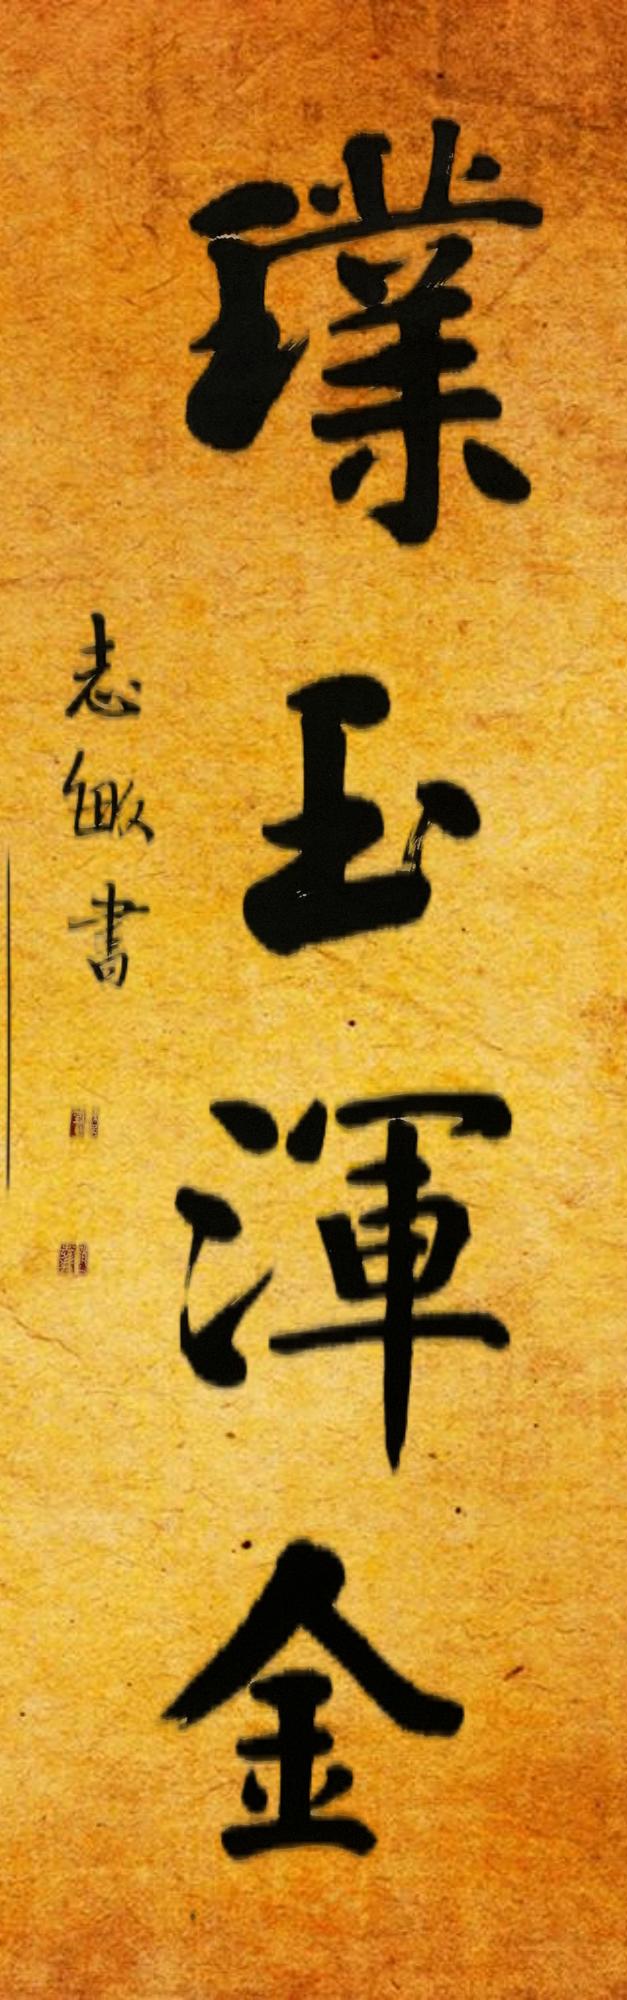 璞玉渾金
志敏書